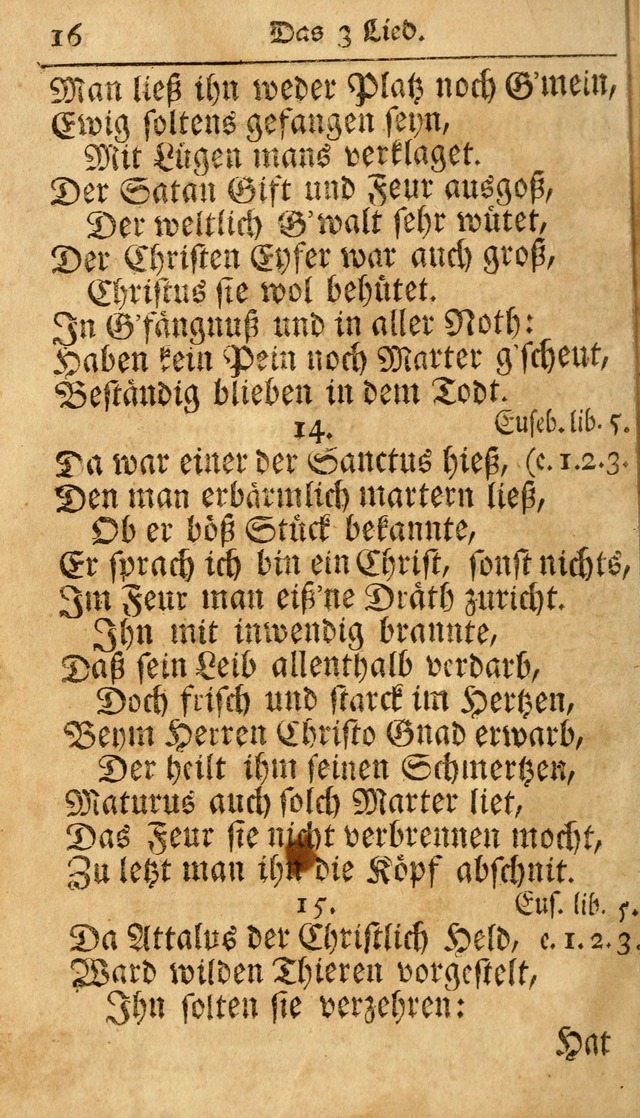 16 Das 3 Lied.
Man ließ ihn weder Platz noch G'mein,
Ewig soltens gefangen seyn,
Mit Lügen mans verklaget.
Der Satan Gift und Feur ausgoß,
Der weltlich G'walt sehr wütet,
Der Christen Eyfer war auch groß,
Christus sie wol behütet.
In G'fängnuß und in aller Noth:
Haben kein Pein noch Marter g'scheut,
Beständig blieben in dem Todt.
14. Euseb. lib. 5.
Da war einer der Sanctus hieß, (c. 1. 2. 3.
Den man erbärmlich martern ließ,
Ob er böß Stück bekannte,
Er sprach ich bin ein Christ, sonst nichts,
Im Feur man eiß'ne Dräth zuricht.
Ihn mit inwendig brannte,
Daß sein Leib allenthalb verdarb,
Doch frisch und starck im Hertzen,
Beym Herren Christo Gnad erwarb,
Der heilt ihm seinen Schmertzen,
Maturus auch solch Marter liet,
Das Feur sie nicht verbrennen mocht,
Zu letzt man ihn die Köpf abschnit.
15. Eus. lib. 5.
Da Attalus der Christlich Held, c. 1. 2. 3.
Ward wilden Thieren vorgestelt,
Ihn solten sie verzehren:
Hat